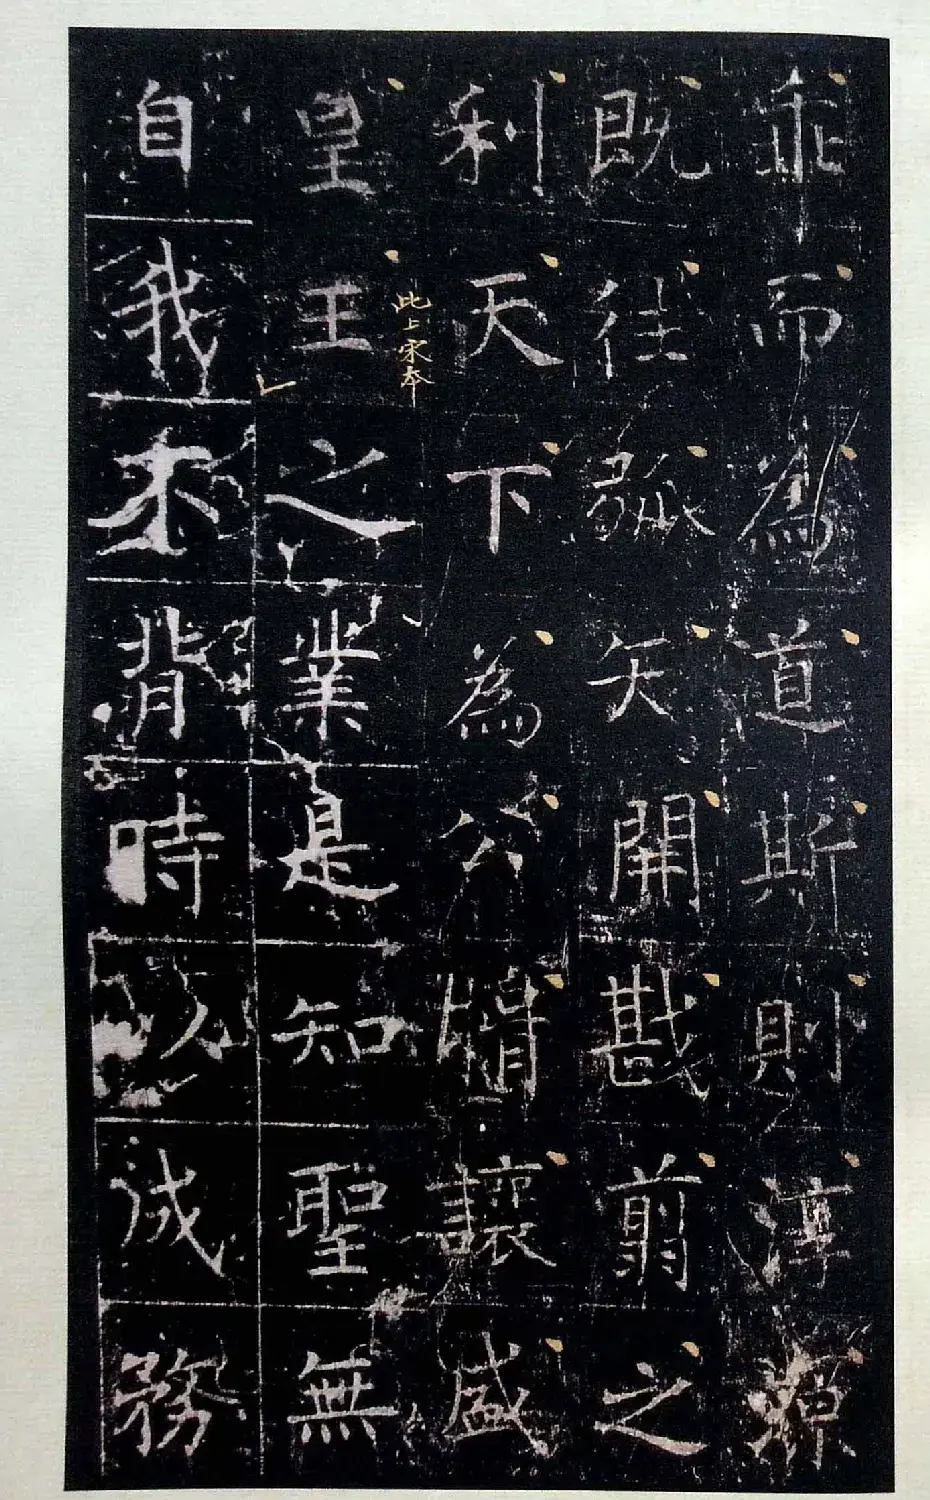 乖而為道斯則淳源
既往弧矢開戡翦之
利天下為公揖讓盛
此上宋本
皇王之業是知聖無
自我不背時以成務